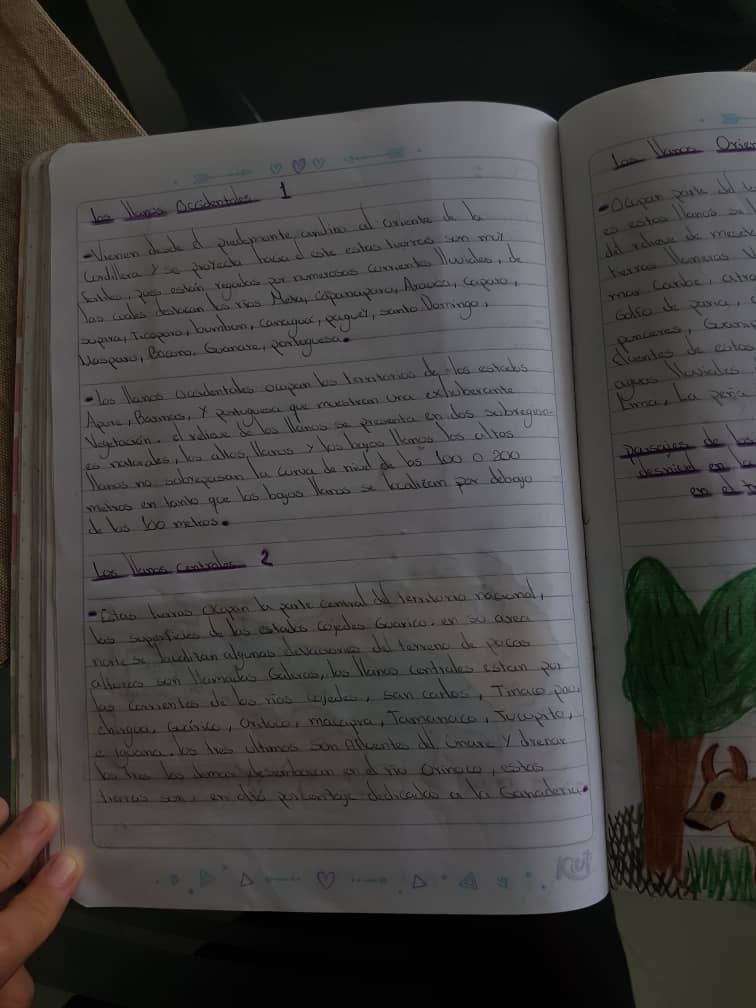 Los llanos Occidentales 1
-Vienen desde el piedemonte andino al oriente de la
Cordillera Y se proyecta hacia el este estas tierras son muy
fertiles, pues están regadas por numerosas corrientes lluvidas, de
las cuales destacan los ríos Meta, Capanaparo, Arauca, Caparo,
suripa, Ticoporo, bumbun, Canagua, paguey, santo Domingo,
Masparo, Bocono, Guanare, portuguesa.
-Los llanos Occidentales ocupan los territorios de los estados
Apure, Barinas, Y portuguesa que muestran una exhuberante
Vegetación. el relieve de los llanos se presenta en dos subregion-
es naturales, los altos llanos y los bajos llanos los altos
llanos no sobrepasan la curva de nivel de los 100 o 200
metros en tanto que los bajos llanos se localizan por debajo
de los 100 metros.
Los llanos Centrales 2
-Estas tierras ocupan la parte central del territorio nacional,
las superficies de los estados Cojedes Guarico. en su area
norte se localizan algunas elevaciones del terreno de pocas
alturas son llamadas Galeras, los llanos centrales estan por
las corrientes de los rios cojedes, san carlos, Tinaco, pao,
chirgua, Guárico, Orituco, macaira, Tamanaco, Tucupito,
e iguana. los tres ultimos son Afluentes del Unare Y drenan
los demas desembocan en el río Orinoco, estas
tierras son, en alto porcentaje dedicados a la Ganaderia.
Kut
Los llanos Orien
-Ocupan parte del
es estos llanos
del relieve de meset
tierras llaneras
mar Caribe,
Golfo de paria,
Guani
afluentes de estos
aguas lluvidas
Ema, La peña
paisajes de los
desnivel en la
en el t